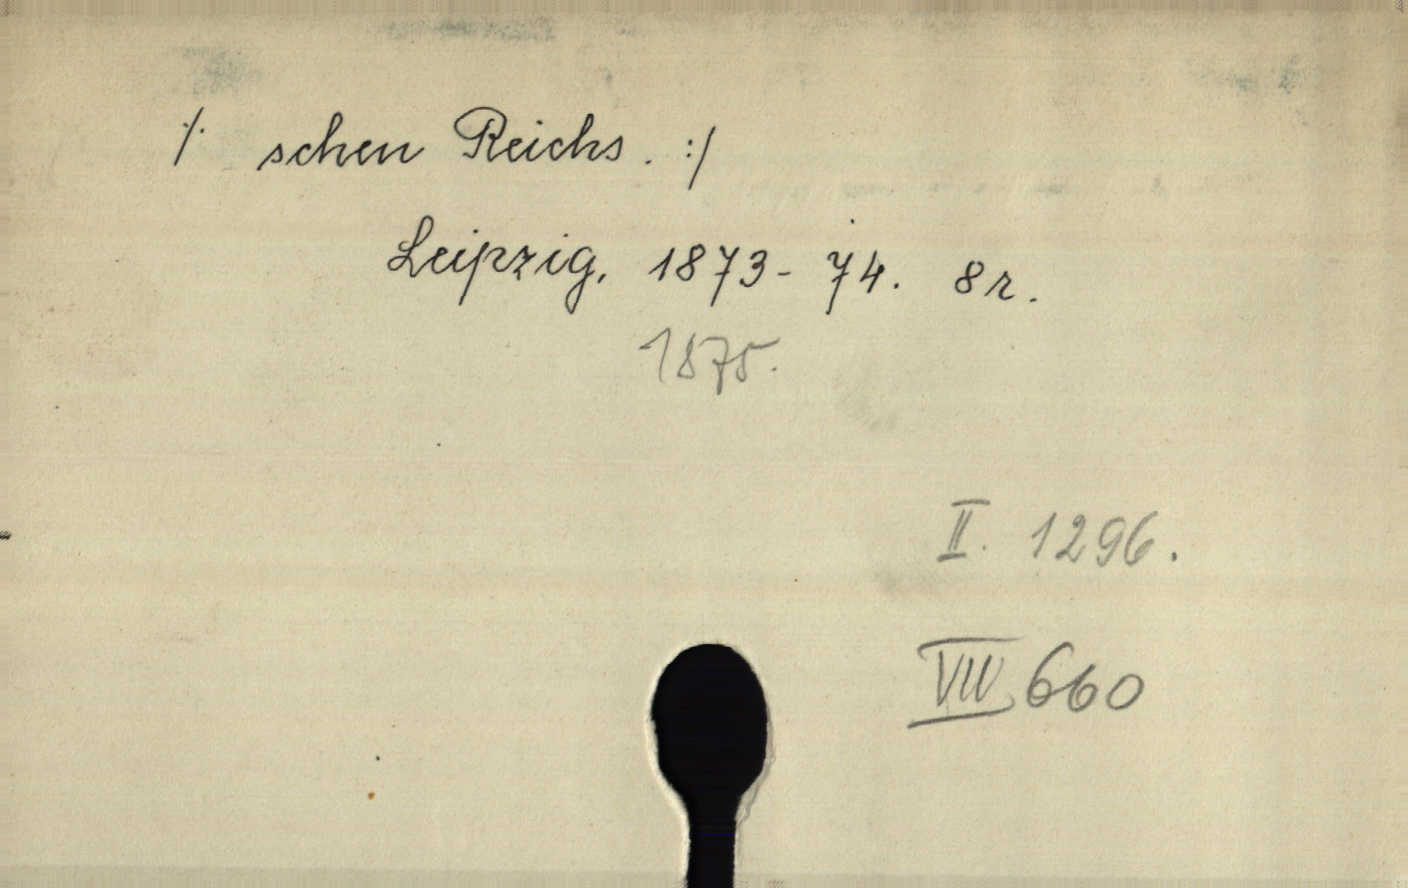 ·/· schen Reichs. :/
Leipzig, 1873-74. 8r.
1875.
II. 1296.
VIII 660